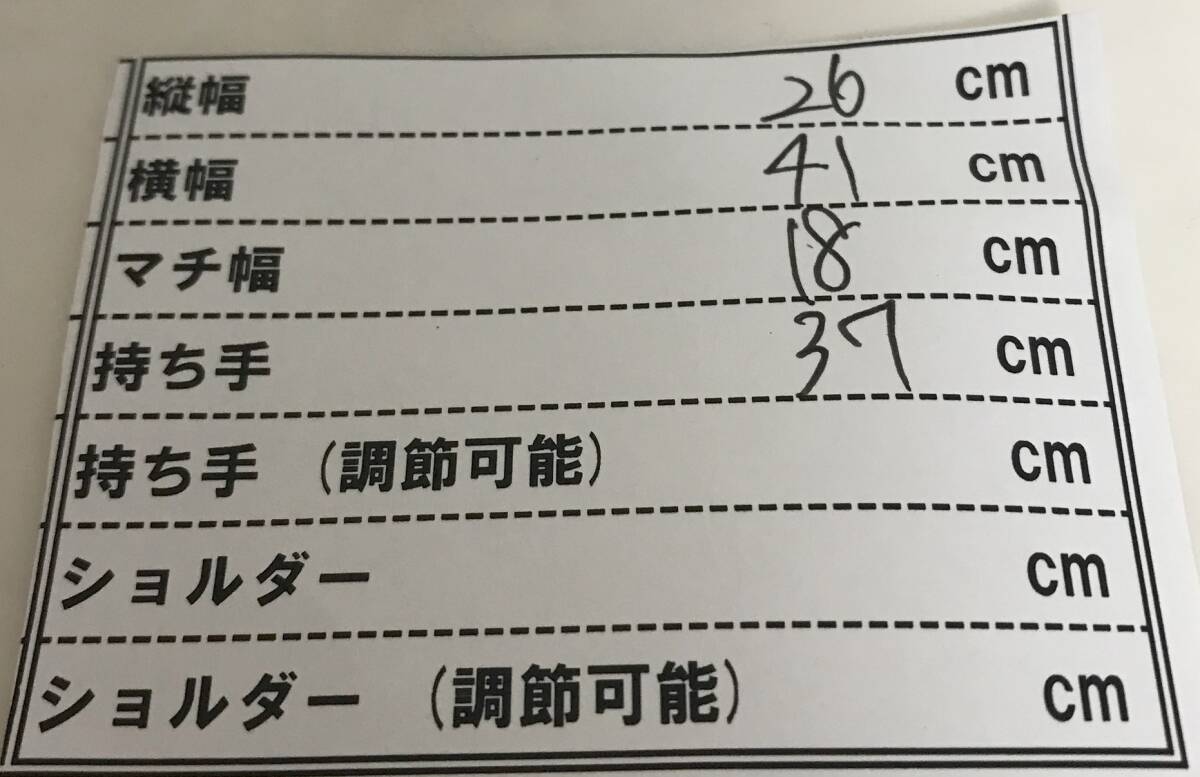 縦幅 26 cm
横幅 41 cm
マチ幅 18 cm
持ち手 37 cm
持ち手 (調節可能) cm
ショルダー cm
ショルダー (調節可能) cm